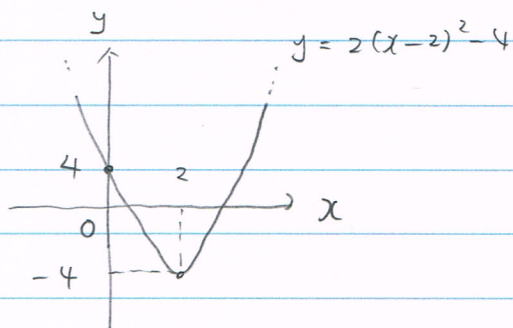 y
y = 2(x-2)²-4
4
2
x
0
-4